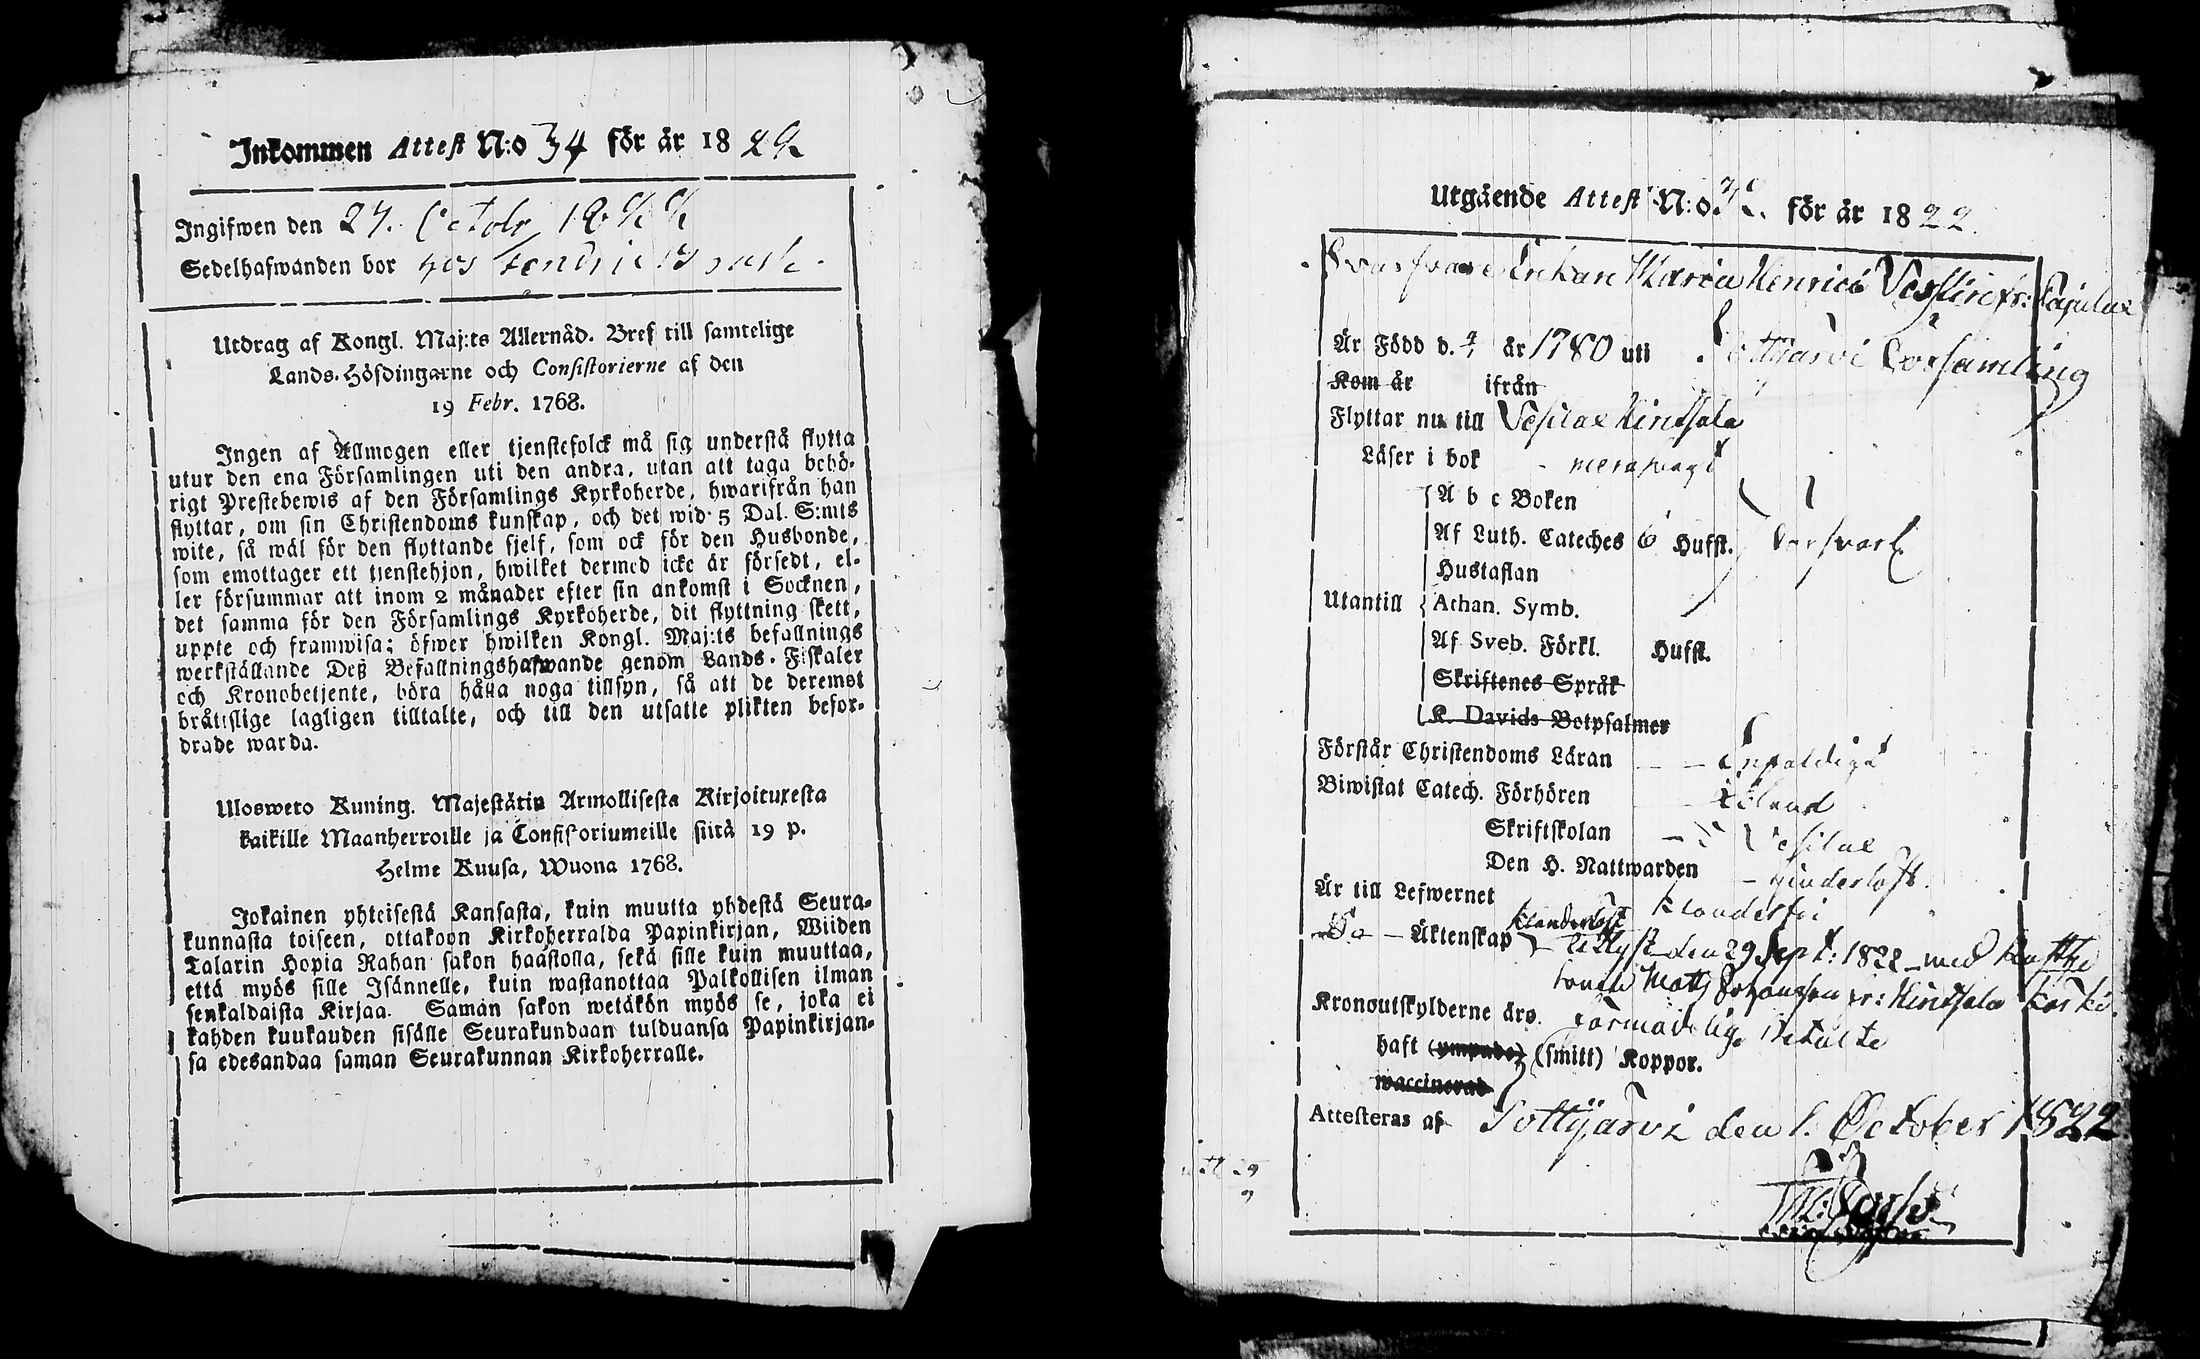 Inkommen Attest N:o 34 för år 1822
Ingifwen den 27. Octobr 1822
Sedelhafwanden bor hos
Utdrag af Kongl. Maj:ts Allernåd. Bref till samtelige
Lands-Höfdingarne och Consistorierne af den
19 Febr. 1768.
Ingen af Allmogen eller tjenstefolck må sig understå flytta
utur den ena Församlingen uti den andra, utan att taga behö-
rigt Prestebewis af den Församlings Kyrkoherde, hwarifrån han
flyttar, om sin Christendoms kunskap, och det wid 5 Dal. S:mts
wite, så wäl för den flyttande sjelf, som ock för den Husbonde,
som emottager ett tjenstehjon, hwilket dermed icke är försedt, el-
ler försummar att inom 2 månader efter sin ankomst i Socknen,
det samma för den Församlings Kyrkoherde, dit flyttning skett,
uppte och framwisa; öfwer hwilken Kongl. Maj:ts befallnings
werkställande Deß Befallningshafwande genom Lands-Fiskaler
och Kronobetjente, böra hålla noga tillsyn, så att de deremot
bråttslige lagligen tilltalte, och till den utsatte plikten befor-
drade warda.
Ulosweto Kuning. Majestätin Armollisesta Kirjoituxesta
kaikille Maanherroille ja Consistoriumeille siitä 19 p.
Helme Kuusa, Wuona 1768.
Jokainen yhteisestä Kansasta, kuin muutta yhdestä Seura-
kunnasta toiseen, ottakoon Kirkoherralda Papinkirjan, Wiiden
Talarin Hopia Rahan sakon haastolla, sekä sille kuin muuttaa,
että myös sille Isännelle, kuin wastanottaa Palkollisen ilman
senkaldaista Kirjaa. Saman sakon wetäkön myös se, joka ei
kahden kuukauden sisälle Seurakundaan tulduansa Papinkirjan-
sa edesandaa saman Seurakunnan Kirkoherralle.
Utgående Attest N:o för år 1822.
Enkan Maria Henrics
Är Född d. år 1780 uti Pottijärvi Församling
Kom år ifrån
Flyttar nu till Vesilax Hindsala
Läser i bok
A b c Boken
Af Luth. Cateches 6 Hufst. försvarl
Hustaflan
Utantill Athan. Symb.
Af Sveb. Förkl. Hufst.
Skriftenes Språk
K. Davids Botpsalmer
Förstår Christendoms Läran enfaldigt
Biwistat Catech. Förhören
Skriftskolan Vesilax
Den H. Nattwarden
Är till Lefwernet klanderfri
Äktenskap utlyst den 29 Sept: 1822 med
Matts Johansson fr: Hindsala
Kronoutskylderne äro betalte
haft (ympade) (smitt) Koppor.
waccinerad
Attesteras af Pottijärvi den 1. October 1822